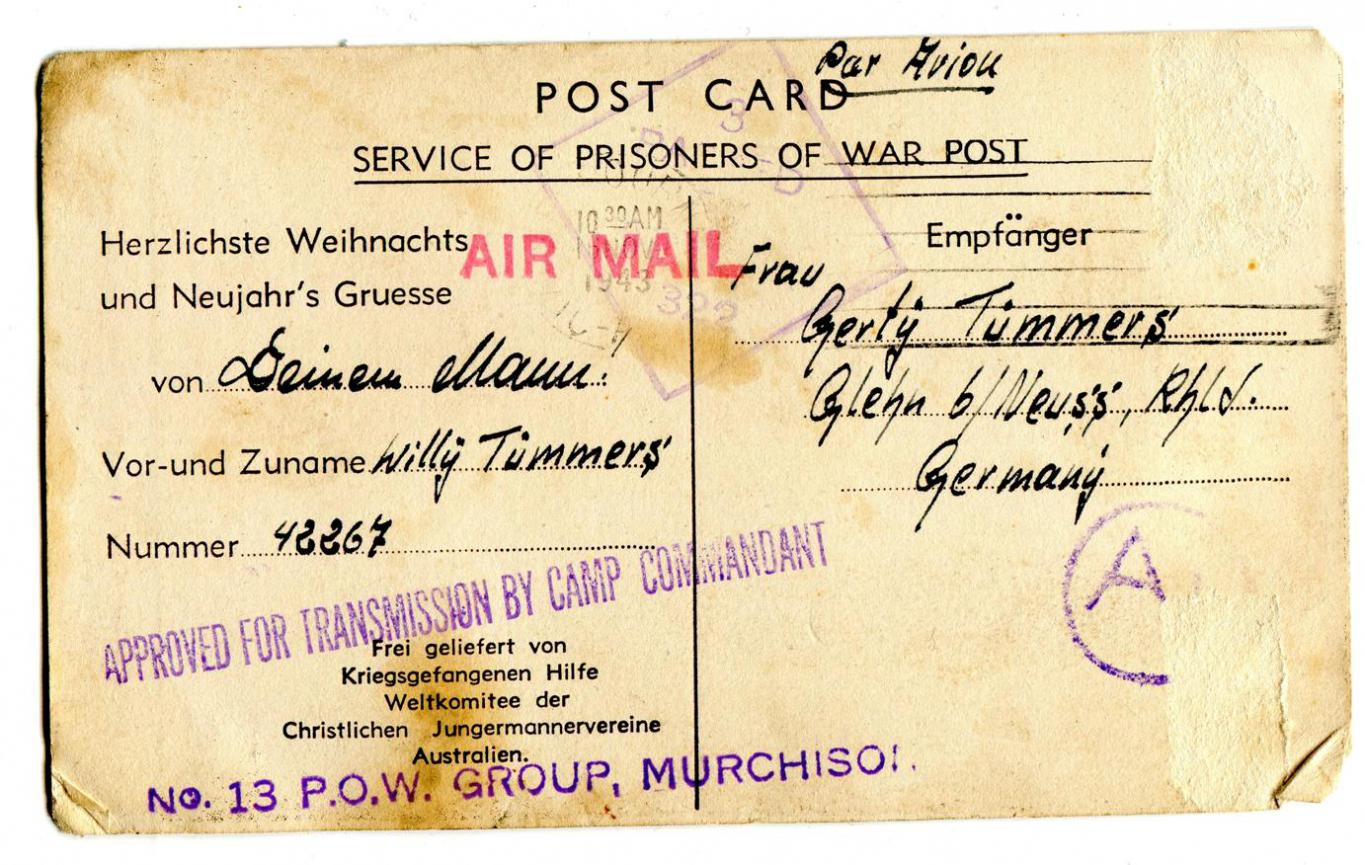 Par Avion
POST CARD
SERVICE OF PRISONERS OF WAR POST
Herzlichste Weihnachts
und Neujahr's Gruesse
von Deinem Mann.
Vor-und Zuname Willy Tümmers
Nummer 42267
APPROVED FOR TRANSMISSION BY CAMP COMMANDANT
Frei geliefert von
Kriegsgefangenen Hilfe
Weltkomitee der
Christlichen Jungermannervereine
Australien.
No. 13 P.O.W. GROUP, MURCHISO
AIR MAIL
10 30 AM
1943
3
322
Empfänger
Frau
Gerty Tümmers
Glehn b/Neuss, Rhld.
Germany
A